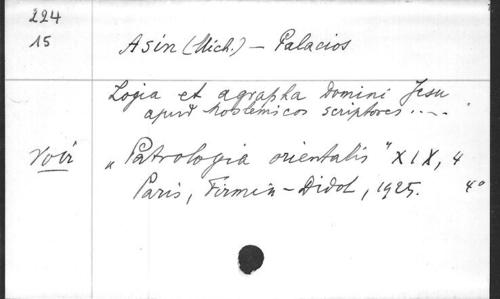 224
15
Asín (Mich.) – Palacios
Logia et agrapha Domini Jesu
apud moslemicos scriptores ....
voir
„Patrologia orientalis" XIX, 4
Paris, Firmin-Didot, 1925. 4°